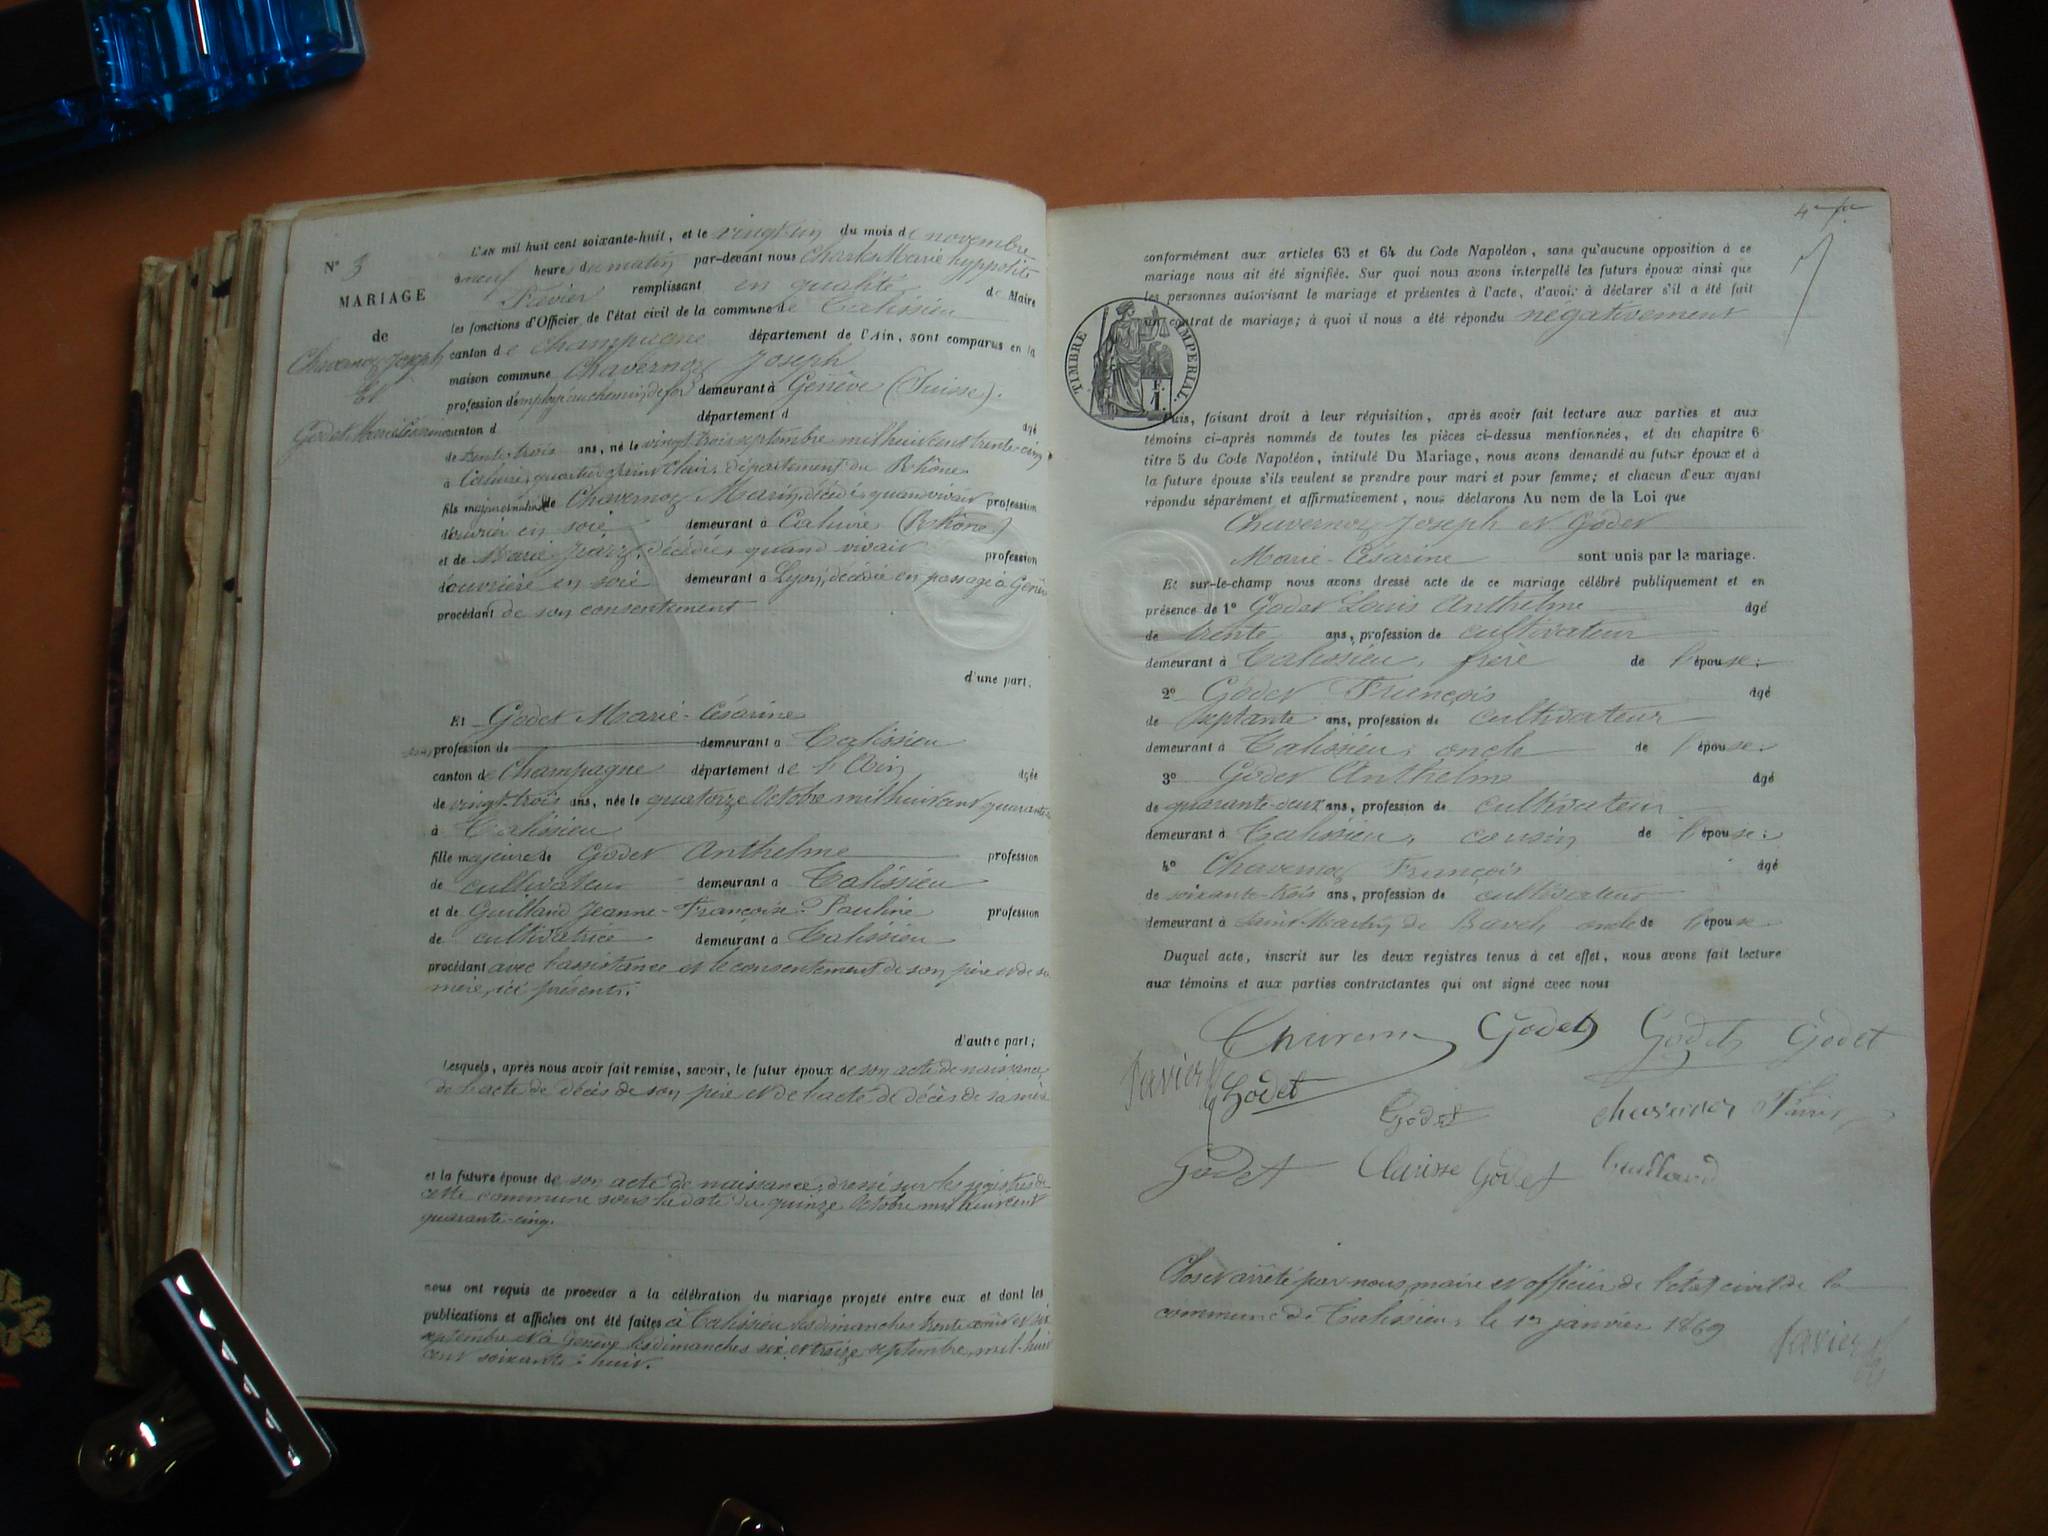 N° 3
MARIAGE
de
Chavernoz Joseph
Et
Godet Marie Césarine
L'an mil huit cent soixante-huit, et le vingt-un du mois de novembre
à neuf heures du matin par-devant nous Charles Marie hyppolite
remplissant en qualité de Maire
les fonctions d'Officier de l'état civil de la commune de Talissieu
canton de Champagne département de l'Ain, sont comparus en la
maison commune Chavernoz Joseph
profession d'employé au chemin de fer demeurant à Genève (Suisse).
canton d département d âgé
de trente-trois ans, né le vingt trois septembre mil huit cent trente-cinq
à Caluire, quartier Saint Clair, département du Rhône
fils majeur de Chavernoz Marin, décédé, quand vivait profession
d'ouvrier en soie demeurant à Caluire (Rhône)
et de Marie décédée, quand vivait profession
d'ouvrière en soie demeurant à Lyon, décédée en passage à Genève
procédant de son consentement
d'une part,
Et Godet Marie-Césarine
profession de demeurant à Talissieu
canton de Champagne département de l'Ain âgée
de vingt-trois ans, née le quatorze Octobre mil huit cent quarante-
à Talissieu
fille majeure de Godet Anthelme profession
de cultivateur demeurant à Talissieu
et de Guilland Jeanne-Françoise-Pauline profession
de cultivatrice demeurant à Talissieu
procédant avec l'assistance et le consentement de son père et de sa
mère, ici présents.
d'autre part;
Lesquels, après nous avoir fait remise, savoir, le futur époux de son acte de naissance,
de l'acte de décès de son père et de l'acte de décès de sa mère
et la future épouse de son acte de naissance, dressé sur les registres de
cette commune sous la date du quinze Octobre mil huit cent
quarante-cinq.
nous ont requis de procéder à la célébration du mariage projeté entre eux et dont les
publications et affiches ont été faites à Talissieu les dimanches trente août et six
septembre et à Genève les dimanches six et treize septembre mil-huit
cent soixante-huit.
conformément aux articles 63 et 64 du Code Napoléon, sans qu'aucune opposition à ce
mariage nous ait été signifiée. Sur quoi nous avons interpellé les futurs époux ainsi que
les personnes autorisant le mariage et présentes à l'acte, d'avoir à déclarer s'il a été fait
un contrat de mariage; à quoi il nous a été répondu négativement
TIMBRE IMPERIAL
F.
1.
Puis, faisant droit à leur réquisition, après avoir fait lecture aux parties et aux
témoins ci-après nommés de toutes les pièces ci-dessus mentionnées, et du chapitre 6
titre 5 du Code Napoléon, intitulé Du Mariage, nous avons demandé au futur époux et à
la future épouse s'ils veulent se prendre pour mari et pour femme; et chacun d'eux ayant
répondu séparément et affirmativement, nous déclarons Au nom de la Loi que
Chavernoz Joseph et Godet
Marie-Césarine sont unis par le mariage.
Et sur-le-champ nous avons dressé acte de ce mariage célébré publiquement et en
présence de 1° Godet Louis Anthelme âgé
de trente ans, profession de cultivateur
demeurant à Talissieu, frère de l'épouse:
2° Godet François âgé
de septante ans, profession de cultivateur
demeurant à Talissieu, oncle de l'épouse:
3° Godet Anthelme âgé
de quarante-deux ans, profession de cultivateur
demeurant à Talissieu, cousin de l'épouse:
4° Chavernoz François âgé
de soixante-trois ans, profession de cultivateur
demeurant à Saint Martin de Bavel oncle de l'épouse
Duquel acte, inscrit sur les deux registres tenus à cet effet, nous avons fait lecture
aux témoins et aux parties contractantes qui ont signé avec nous
Godet Godet Godet
Godet Godet
Godet Clarisse Godet Guilland
Clos et arrêté par nous, maire et officier de l'état civil de la
commune de Talissieu, le 1er janvier 1869